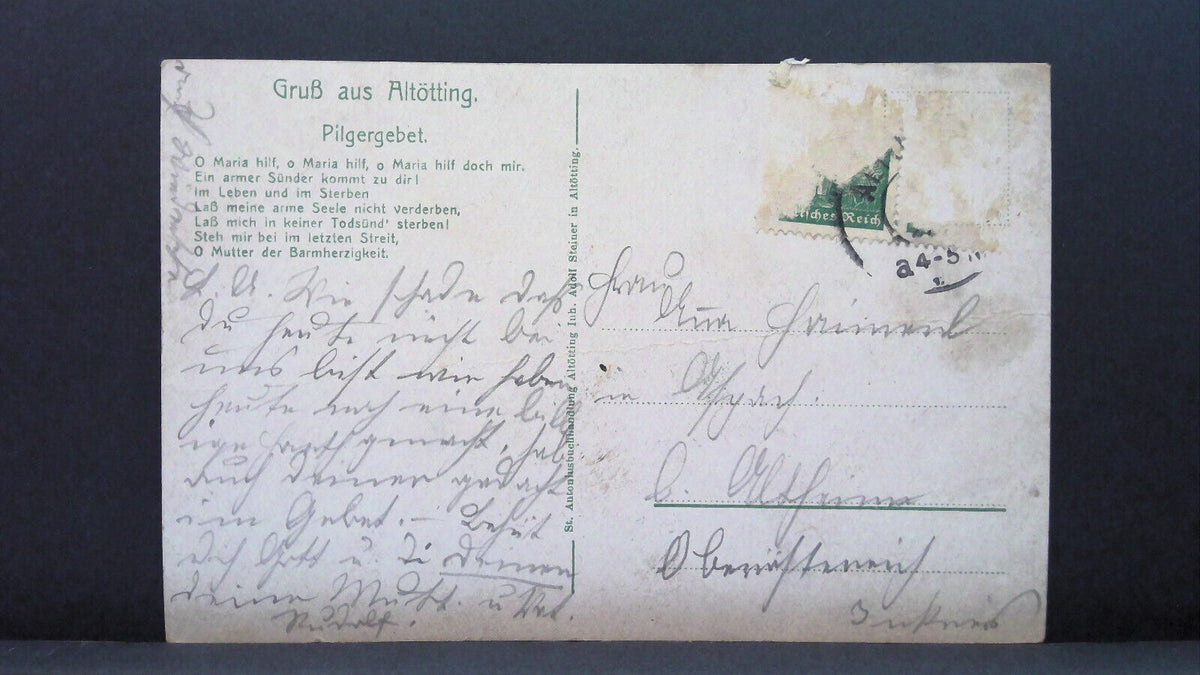 Gruß aus Altötting.
Pilgergebet.
O Maria hilf, o Maria hilf, o Maria hilf doch mir.
Ein armer Sünder kommt zu dir!
Im Leben und im Sterben
Laß meine arme Seele nicht verderben,
Laß mich in keiner Todsünd' sterben!
Steh mir bei im letzten Streit,
O Mutter der Barmherzigkeit.
L. A. Wie schade daß
du heute nicht bei
uns bist wir haben
heute noch eine
gemacht, hab
auch deiner gedacht
im Gebet. – Behüt
dich Gott u. deinen
deine Mutt. u. Vat.
Rudolf.
St. Antoniusbuchhandlung Altötting Inh. Adolf Steiner in Altötting.
tsches Reich
a4-5
Frau
Anna
in Aspach.
b. Altheim
Oberösterreich